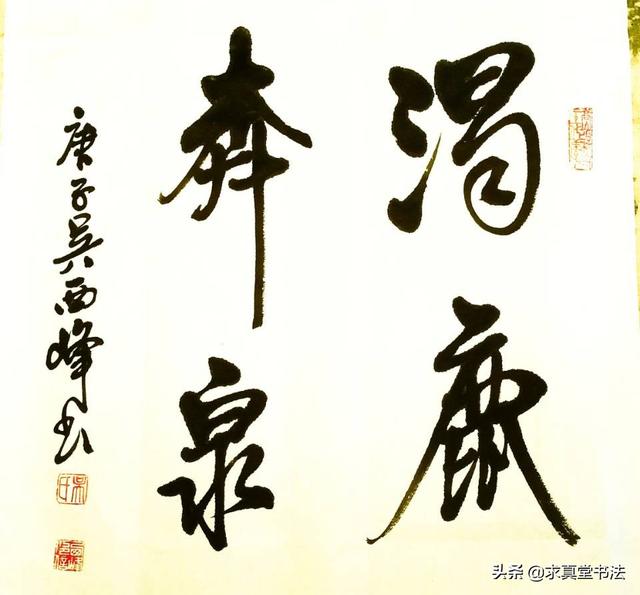 渴鹿
奔泉
庚子吴西峰书
头条 @求真堂书法